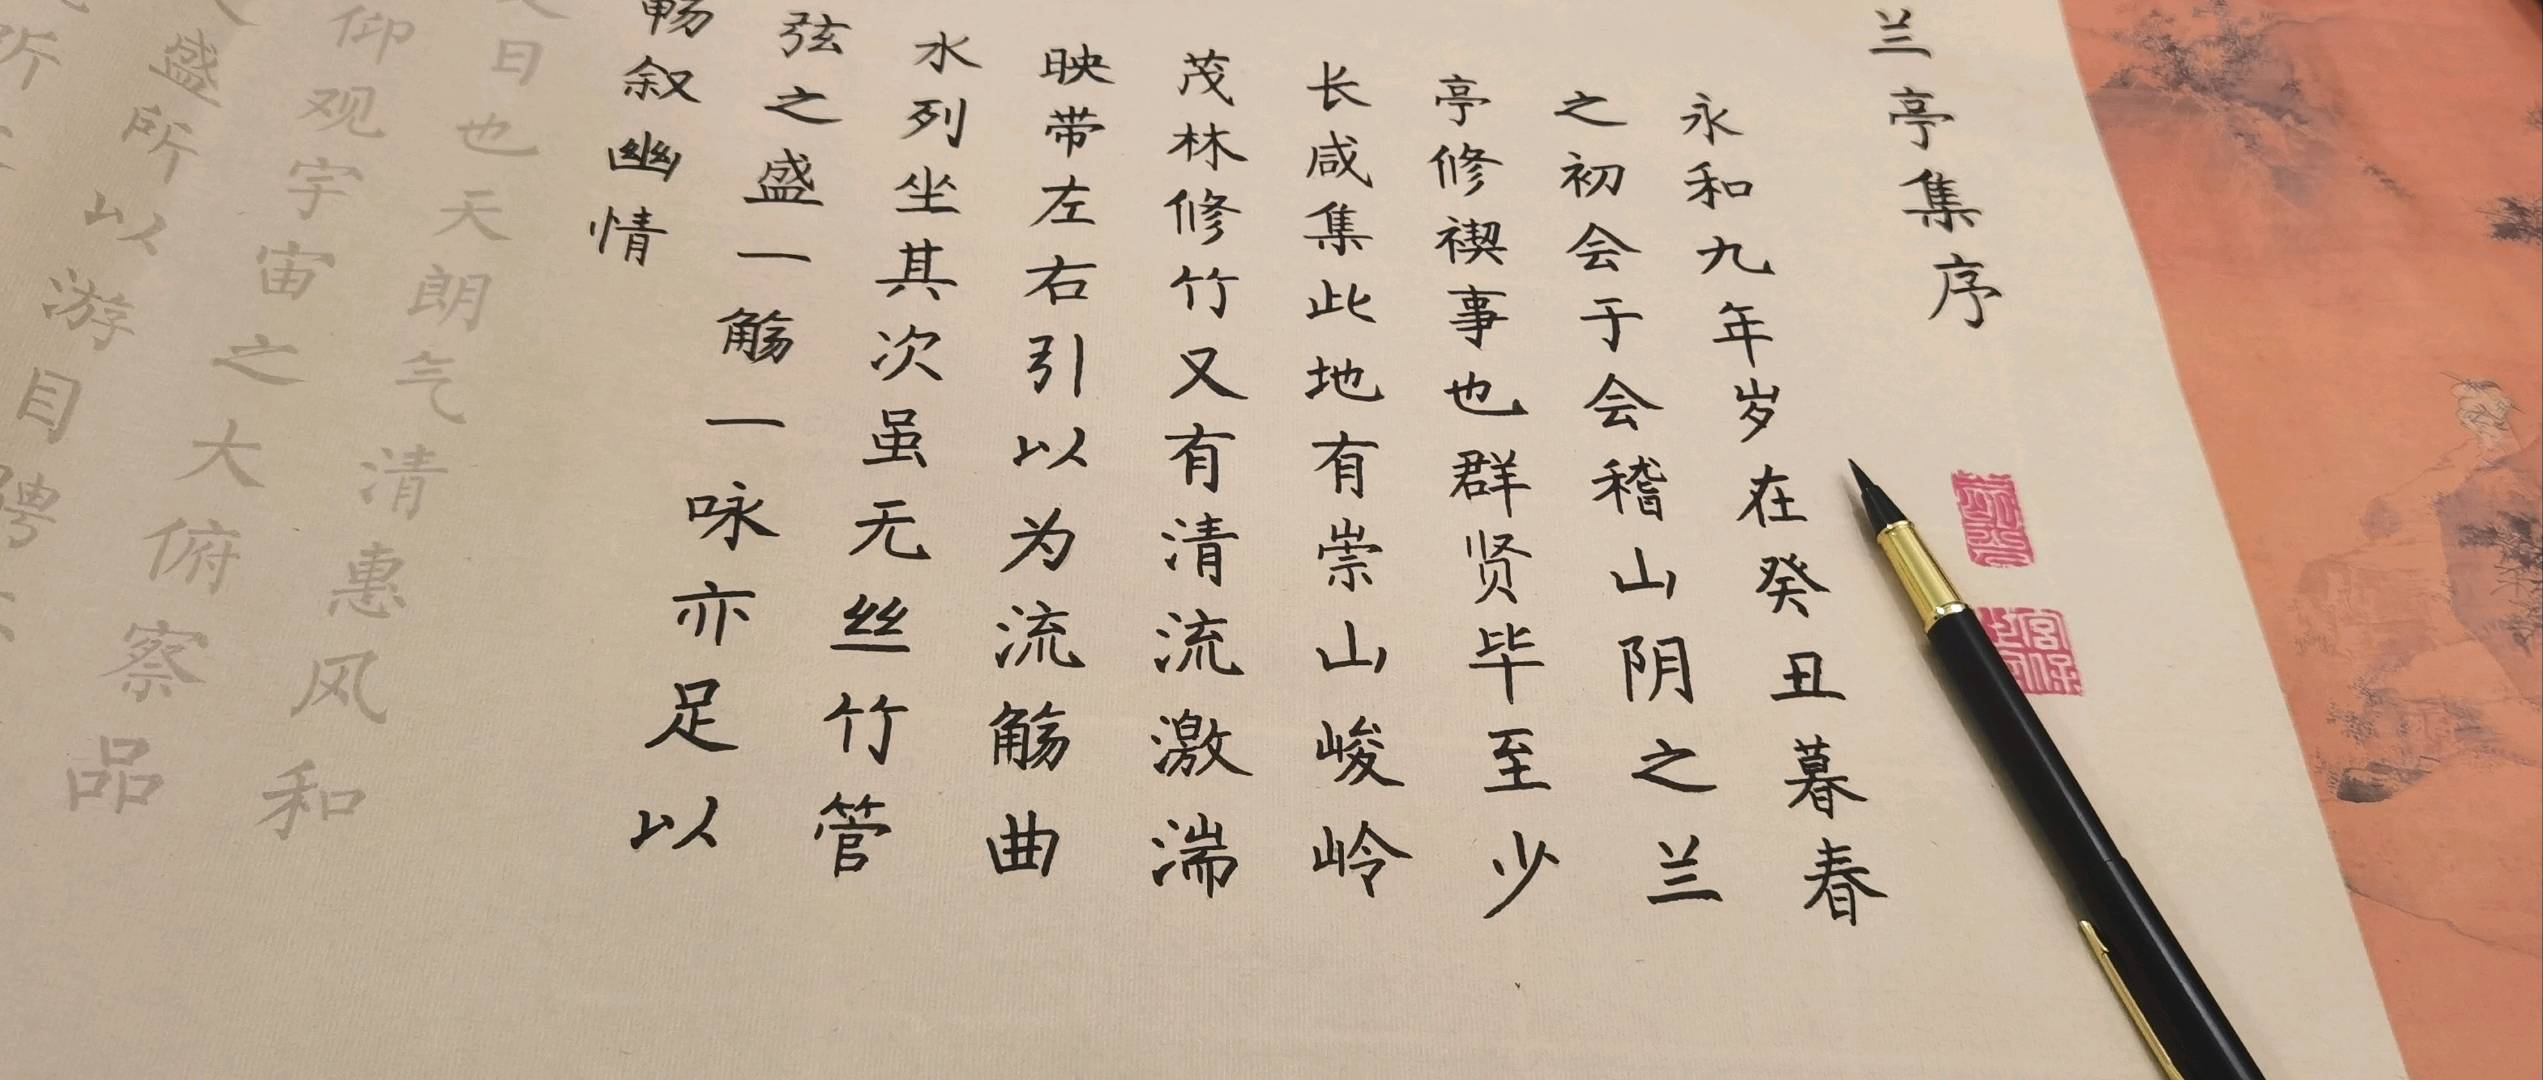 兰亭集序
永和九年岁在癸丑暮春
之初会于会稽山阴之兰
亭修禊事也群贤毕至少
长咸集此地有崇山峻岭
茂林修竹又有清流激湍
映带左右引以为流觞曲
水列坐其次虽无丝竹管
弦之盛一觞一咏亦足以
畅叙幽情
日也天朗气清惠风和
仰观宇宙之大俯察品
盛所以游目骋